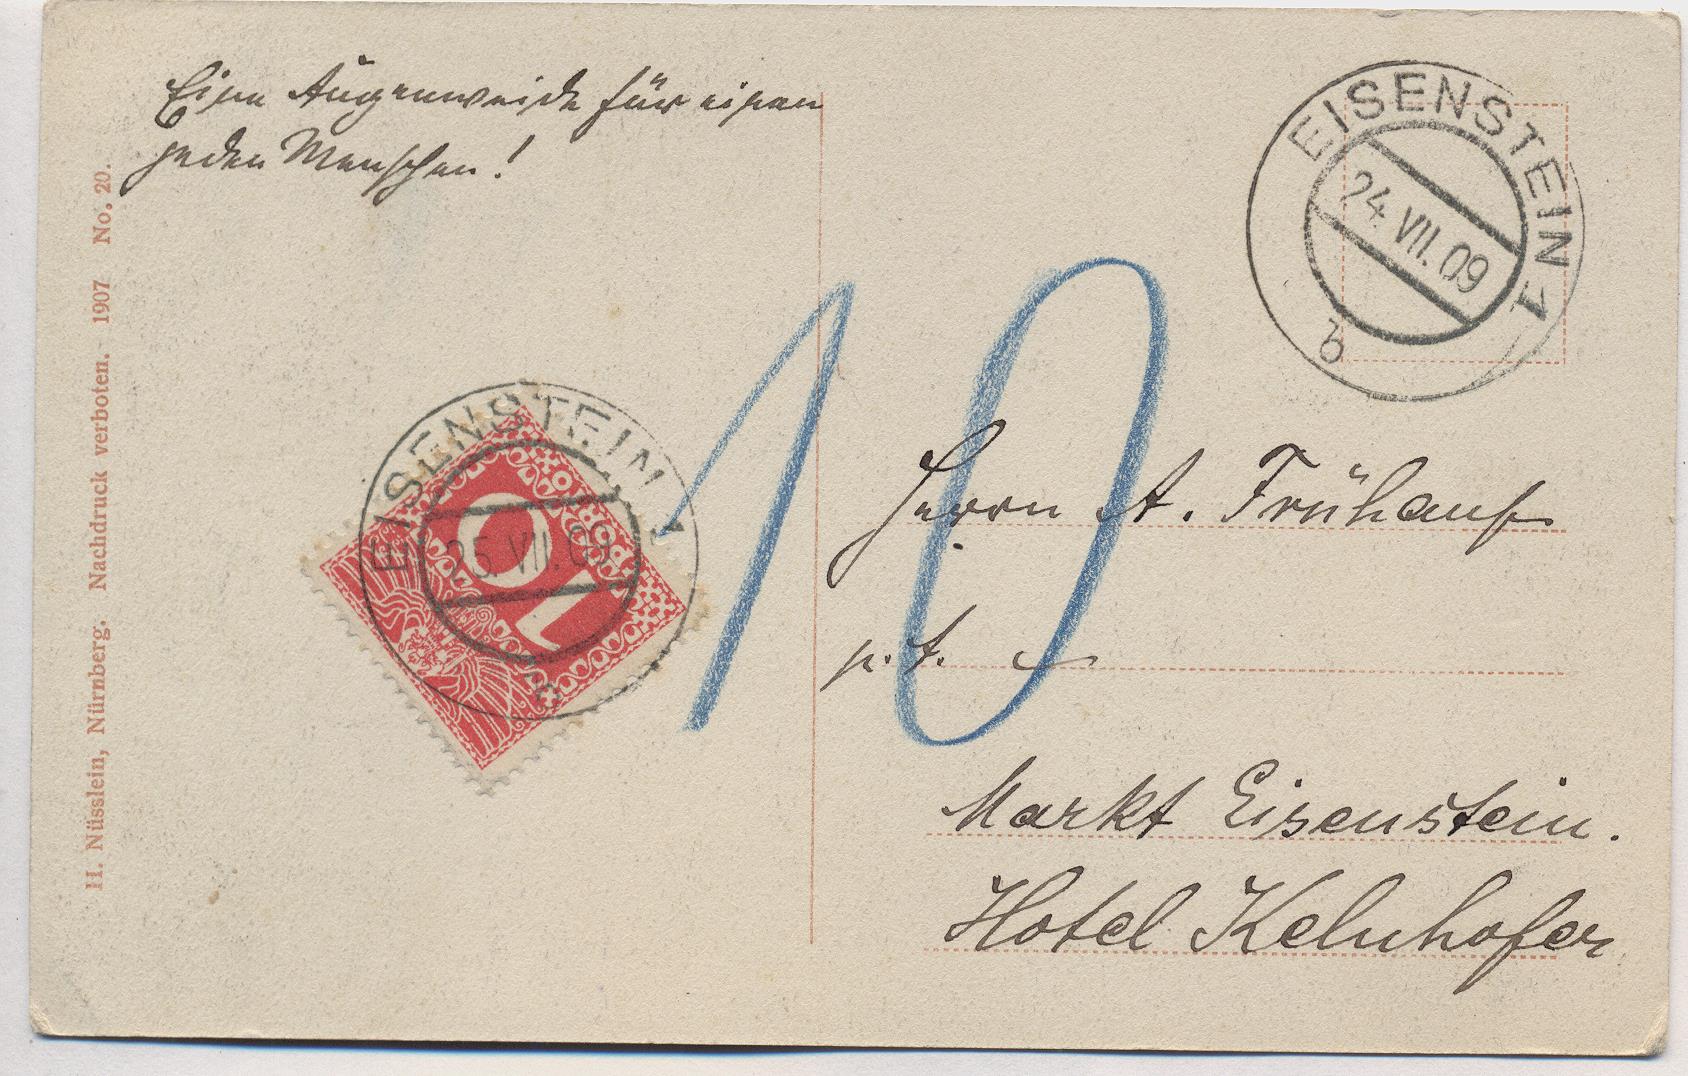 Eine Augenweide für einen
jeden Menschen!
H. Nüsslein, Nürnberg. Nachdruck verboten. 1907 No. 20.
EISENSTEIN 1
24. VII. 09
b
EISENSTEIN 1
25. VII. 09
10
10
Herrn A. Frühauf
p. t.
Markt Eisenstein.
Hotel Kelnhofer